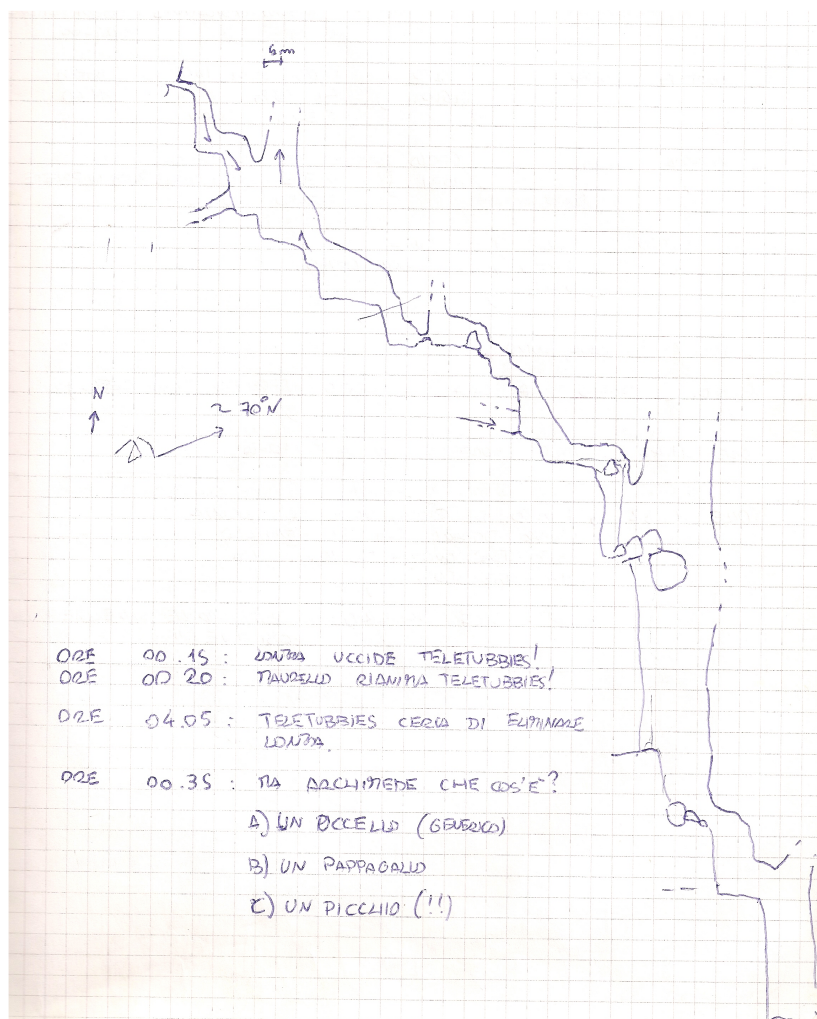 5m
N
~ 70°N
ORE 00.15 : LONTRA UCCIDE TELETUBBIES!
ORE 00 20 : MAURELLO RIANIMA TELETUBBIES!
ORE 04.05 : TELETUBBIES CERCA DI ELIMINARE
LONTRA.
ORE 00.35 : MA ARCHIMEDE CHE COS'E'?
A) UN UCCELLO (GENERICO)
B) UN PAPPAGALLO
C) UN PICCHIO (!!)